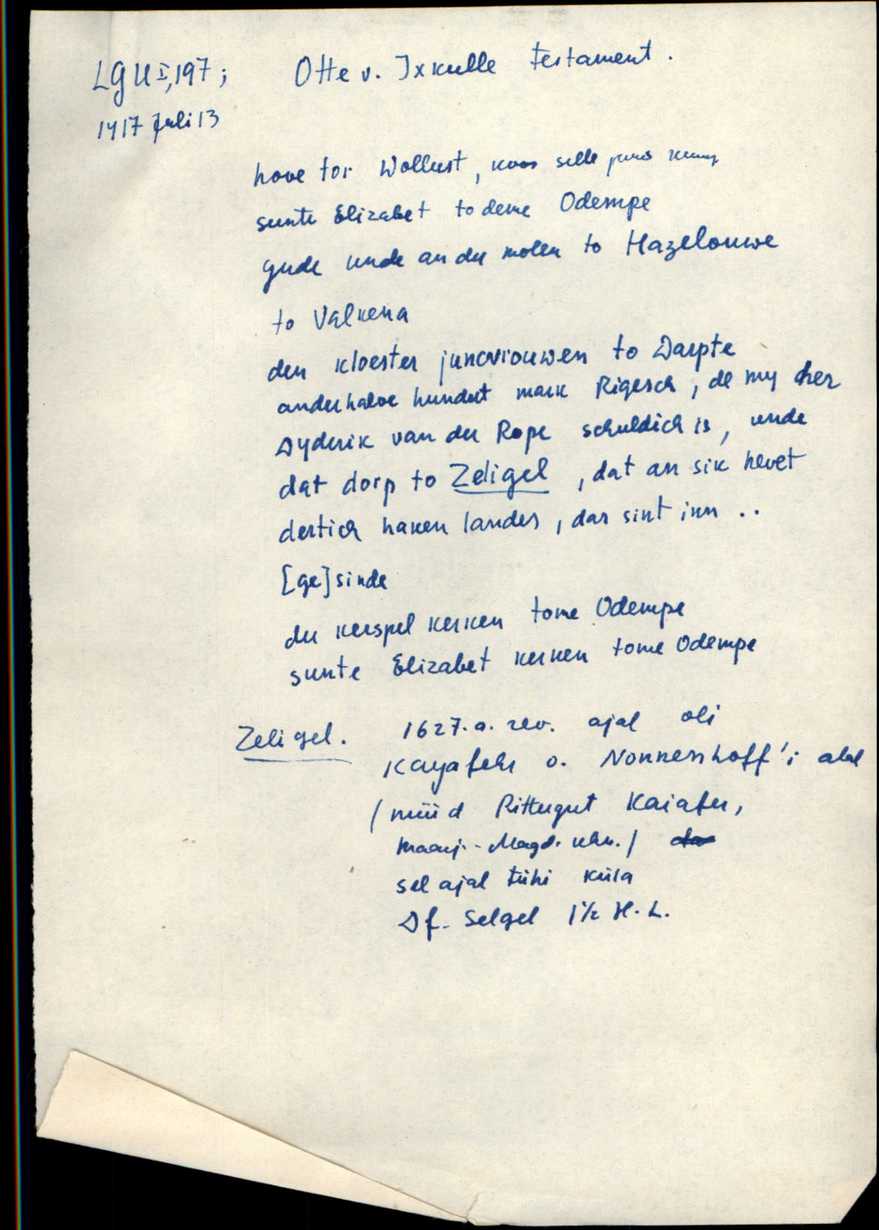 LGU I, 197; Otte v. Ixkulle testament.
1417 Juli 13
hove tor Wollust, koos selle juures
sunte Elizabet to deme Odempe
gude unde an der molen to Hazelouwe
to Valkena
den kloester juncvrouwen to Darpte
anderhalve hundert mark Rigesch, de my her
Dyderik van der Rope schuldich is, unde
dat dorp to Zeligel, dat an sik hevet
dertich haken landes, dar sint inn ..
[ge]sinde
der kerspel kerken tome Odempe
sunte Elizabet kerken tome Odempe
Zeligel. 1627.a. rev. ajal oli
Kayafehr o. Nonnenhoff'i alal
/müüd Rittergut Kaiafer,
Maarj.-Magd. khn./
sel ajal tühi küla
Df. Selgel 1½ H.L.